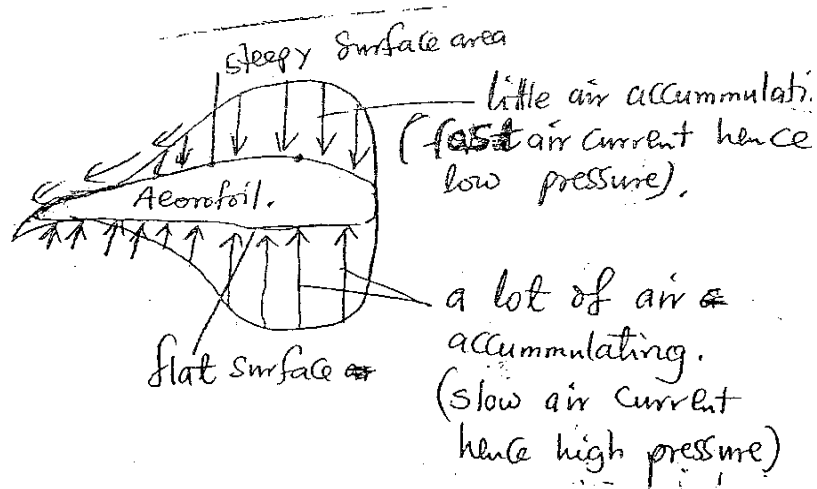 steepy surface area
little air accummulati
(fast air current hence
low pressure).
Aeorofoil.
a lot of air
accummulating.
flat surface
(slow air current
hence high pressure)